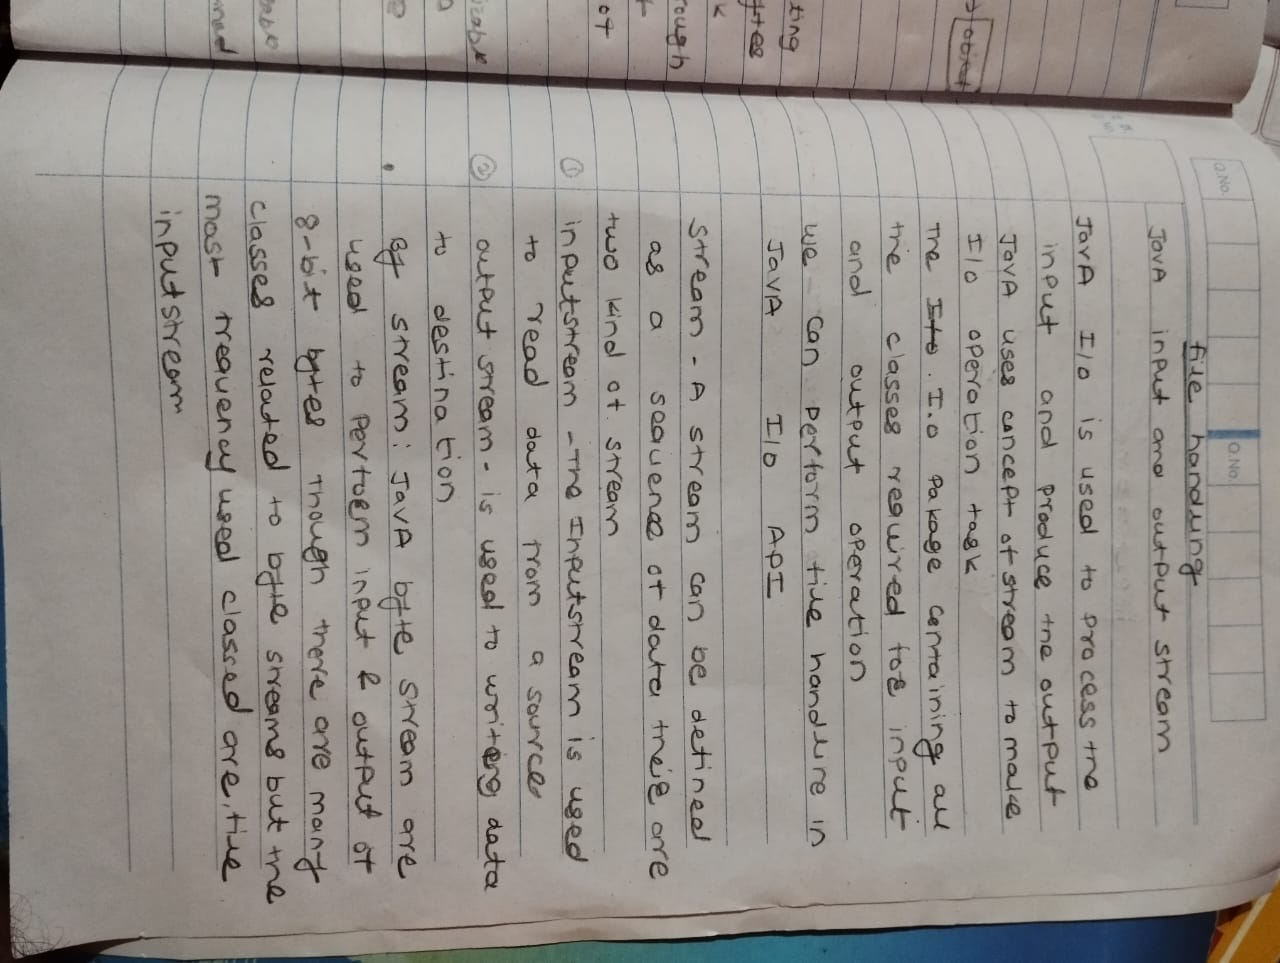 Q.No. Q.No.
file handling
JavA input and output stream
JavA I/O is used to process the
input and produce the output
JavA uses concept of stream to make
I/O operation task
The I.O Pakage containing all
the classes required for input
and output operation
we can perform file handlire in
JavA I/O API
Stream - A stream can be defined
as a sequence of data there are
two kind of stream
① inputstream - The Inputstream is used
to read data from a source
② output stream - is used to writing data
to destination
By stream: JavA byte stream are
used to perform input & output of
8-bit bytes Though there are many
classes related to byte streams but the
most frequency used classed are, file
inputstream
object
ting
ytes
k
rough
of